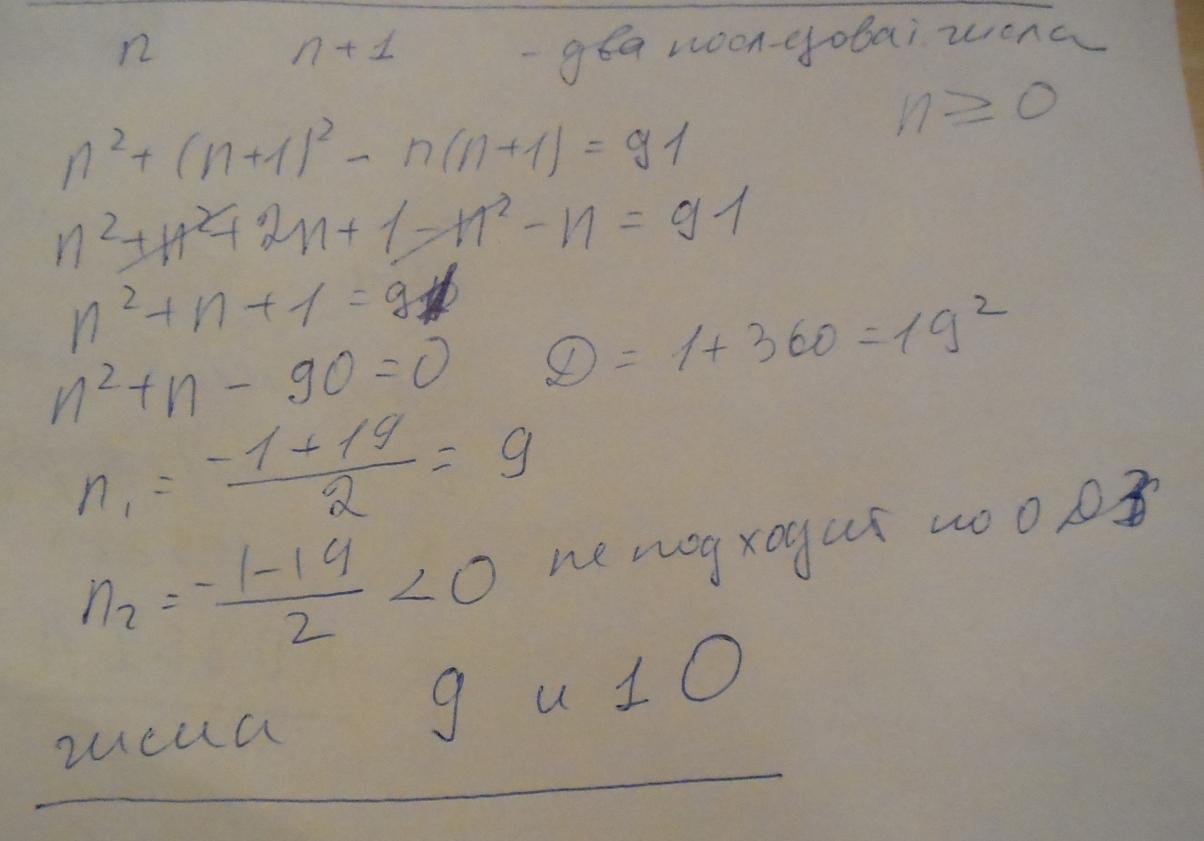 n n+1 - два последоват числа
n ≥ 0
n² + (n+1)² - n(n+1) = 91
n² + n² + 2n + 1 - n² - n = 91
n² + n + 1 = 91
n² + n - 90 = 0 D = 1 + 360 = 19²
n₁ = (-1 + 19)/2 = 9
n₂ = (-1 - 19)/2 < 0 не подходит по ОДЗ
числа 9 и 10